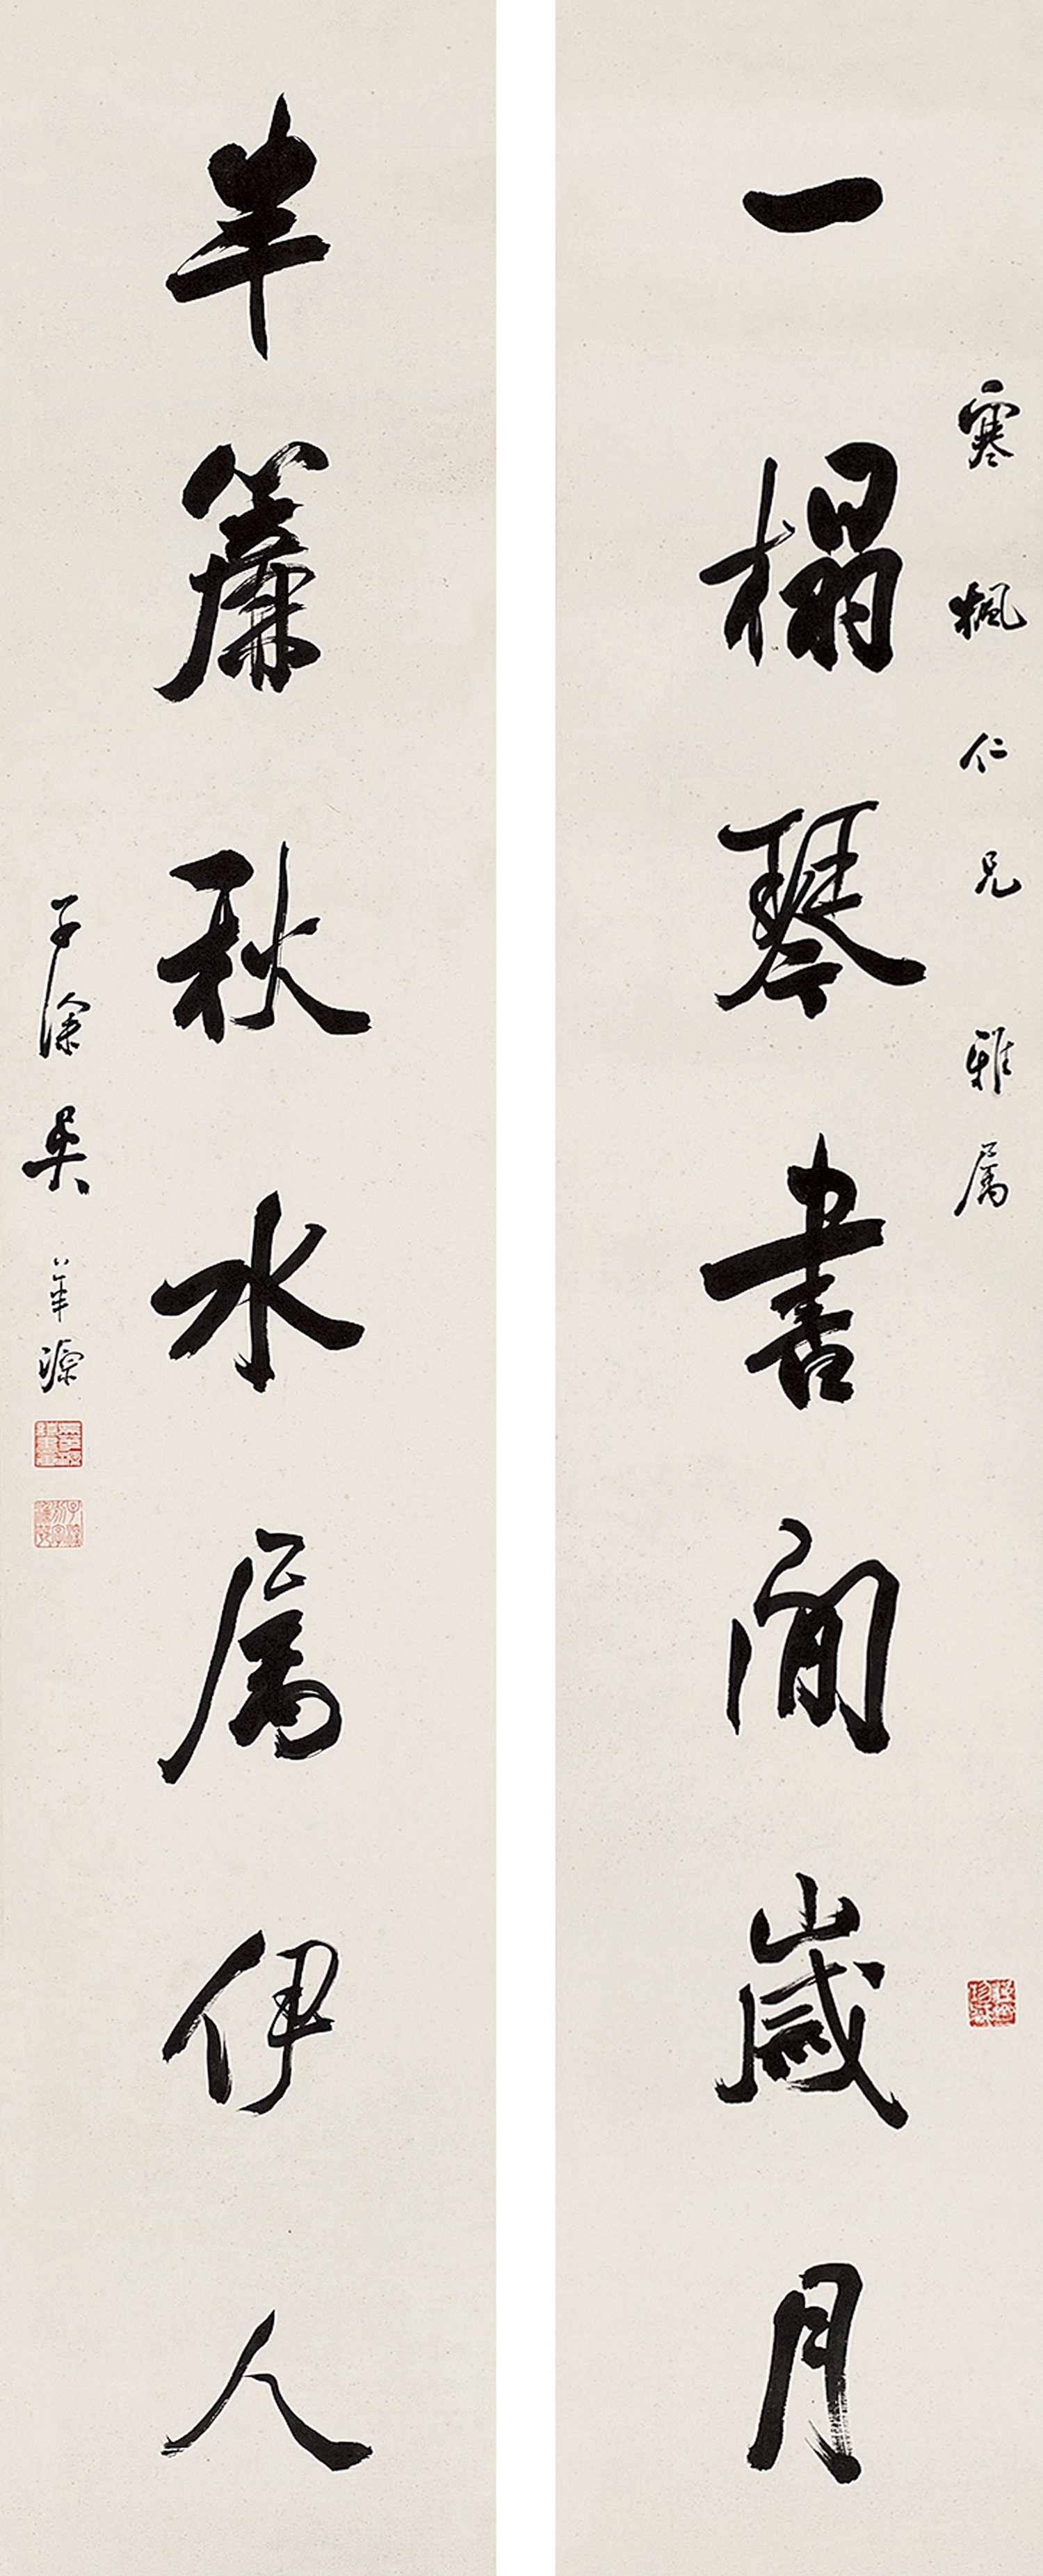 寒楓仁兄 雅属
一榻琴書閒歲月
半簾秋水属伊人
子深吳華源